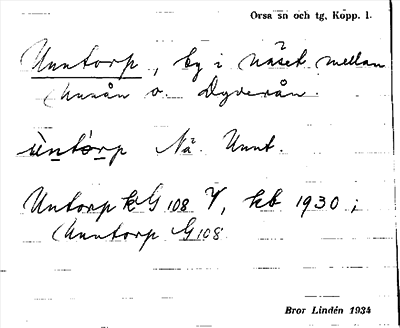 Orsa sn och tg, Kopp. l.
Unntorp, by i näset mellan
Unnån o. Dyverån.
ùntórp Nä. Unnt.
Untorp G 108 V, kb 1930;
Unntorp G 108
Bror Lindén 1934